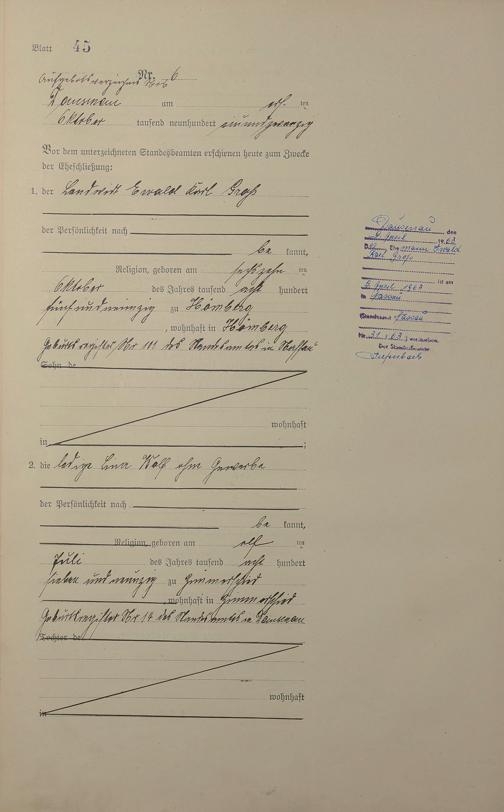 Blatt 45
Aufgebotsverzeichnis Nr. 6
am ten
Oktober tausend neunhundert einundzwanzig
Vor dem unterzeichneten Standesbeamten erschienen heute zum Zwecke
der Eheschließung:
1. der Landwirt Ewald Karl Groß
der Persönlichkeit nach
be kannt,
Religion, geboren am sechszehn ten
Oktober des Jahres tausend acht hundert
fünfundneunzig zu Hömberg
, wohnhaft in Hömberg
Geburtsregister Nr. des Standesamtes in Nassau
Sohn de
wohnhaft
in ;
2. die ledige Lina ohne Gewerbe
der Persönlichkeit nach
be kannt,
Religion, geboren am elf ten
Juli des Jahres tausend acht hundert
sieben und neunzig zu Zimmerschied
, wohnhaft in Zimmerschied
Geburtsregister Nr. 14 des Standesamtes in
Tochter de
wohnhaft
in
Dausenau, den
April 1963
Der Ehemann Ewald
Karl Groß
ist am
April 1963
in Nassau
Standesamt Nassau
Nr. 31/63) verstorben.
Der Standesbeamte